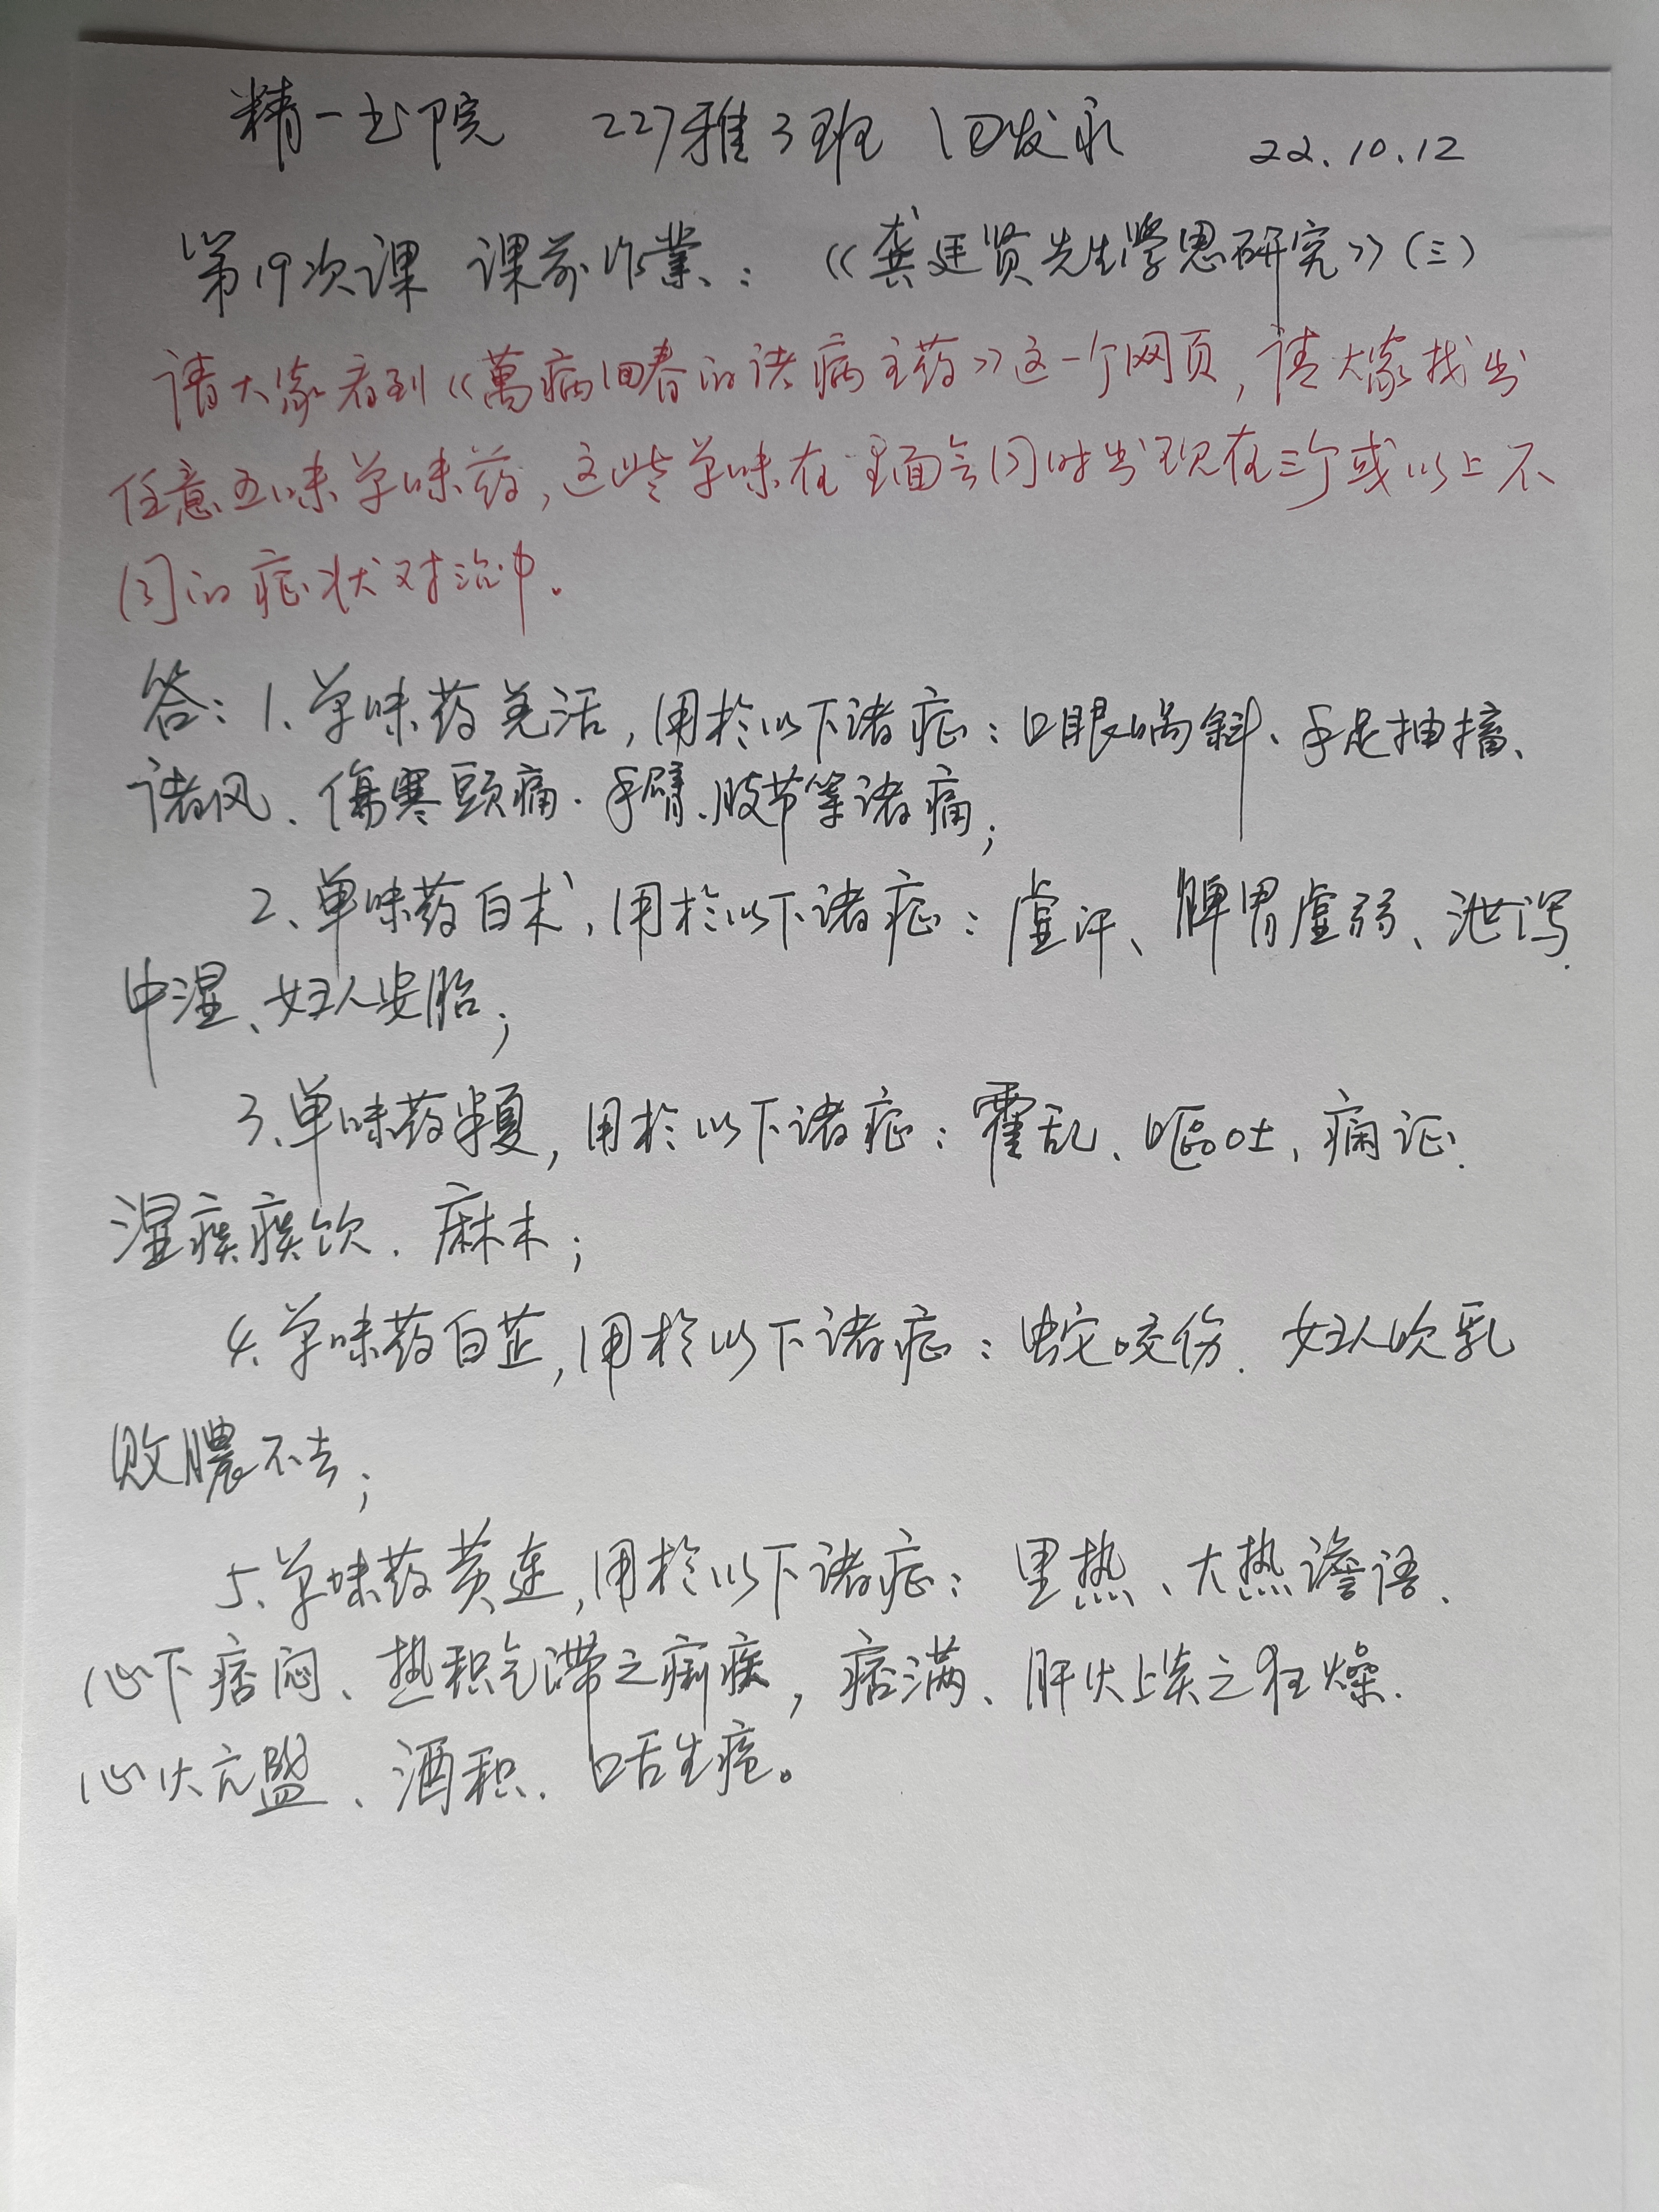 精一书院 227雅3班 田发永 22.10.12
第19次课 课前作業：《龚廷贤先生学思研究》(三)
请大家看到《萬病回春的诸病主药》这一个网页，请大家找出
任意五味单味药，这些单味在里面会同时出现在三个或以上不
同的症状对治中。
答：1、单味药羌活，用於以下诸症：口眼喎斜、手足抽搐、
诸风、傷寒頭痛、手臂、肢节等诸痛；
2、单味药白术，用於以下诸症：虚汗、脾胃虚弱、泄泻、
中湿、妇人安胎；
3、单味药半夏，用於以下诸症：霍乱、呕吐、痫证、
湿痰痰饮、麻木；
4、单味药白芷，用於以下诸症：蛇咬伤、妇人吹乳
败膿不去；
5、单味药黄连，用於以下诸症：里热、大热谵语、
心下痞闷、热积气滞之痢疾，痞满、肝火上炎之狂燥、
心火亢盛、酒积、口舌生疮。